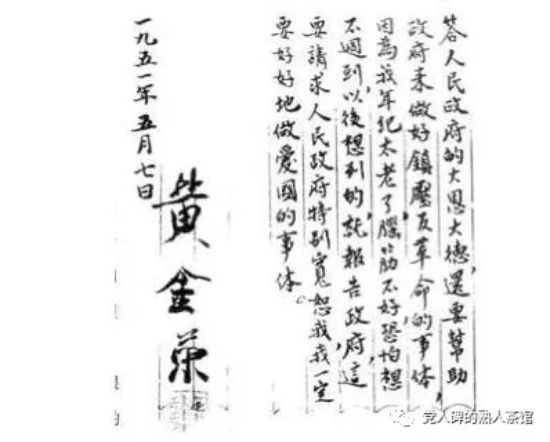 答人民政府的大恩大德,還要幫助
政府来做好鎮壓反革命的事体,
因為我年纪太老了腦筋不好恐怕想
不週到,以後想到的,就報告政府,這
要請求人民政府特别寬恕我,我一定
要好好地做愛國的事体。
一九五一年五月七日
黄金荣
党人碑的熟人茶馆